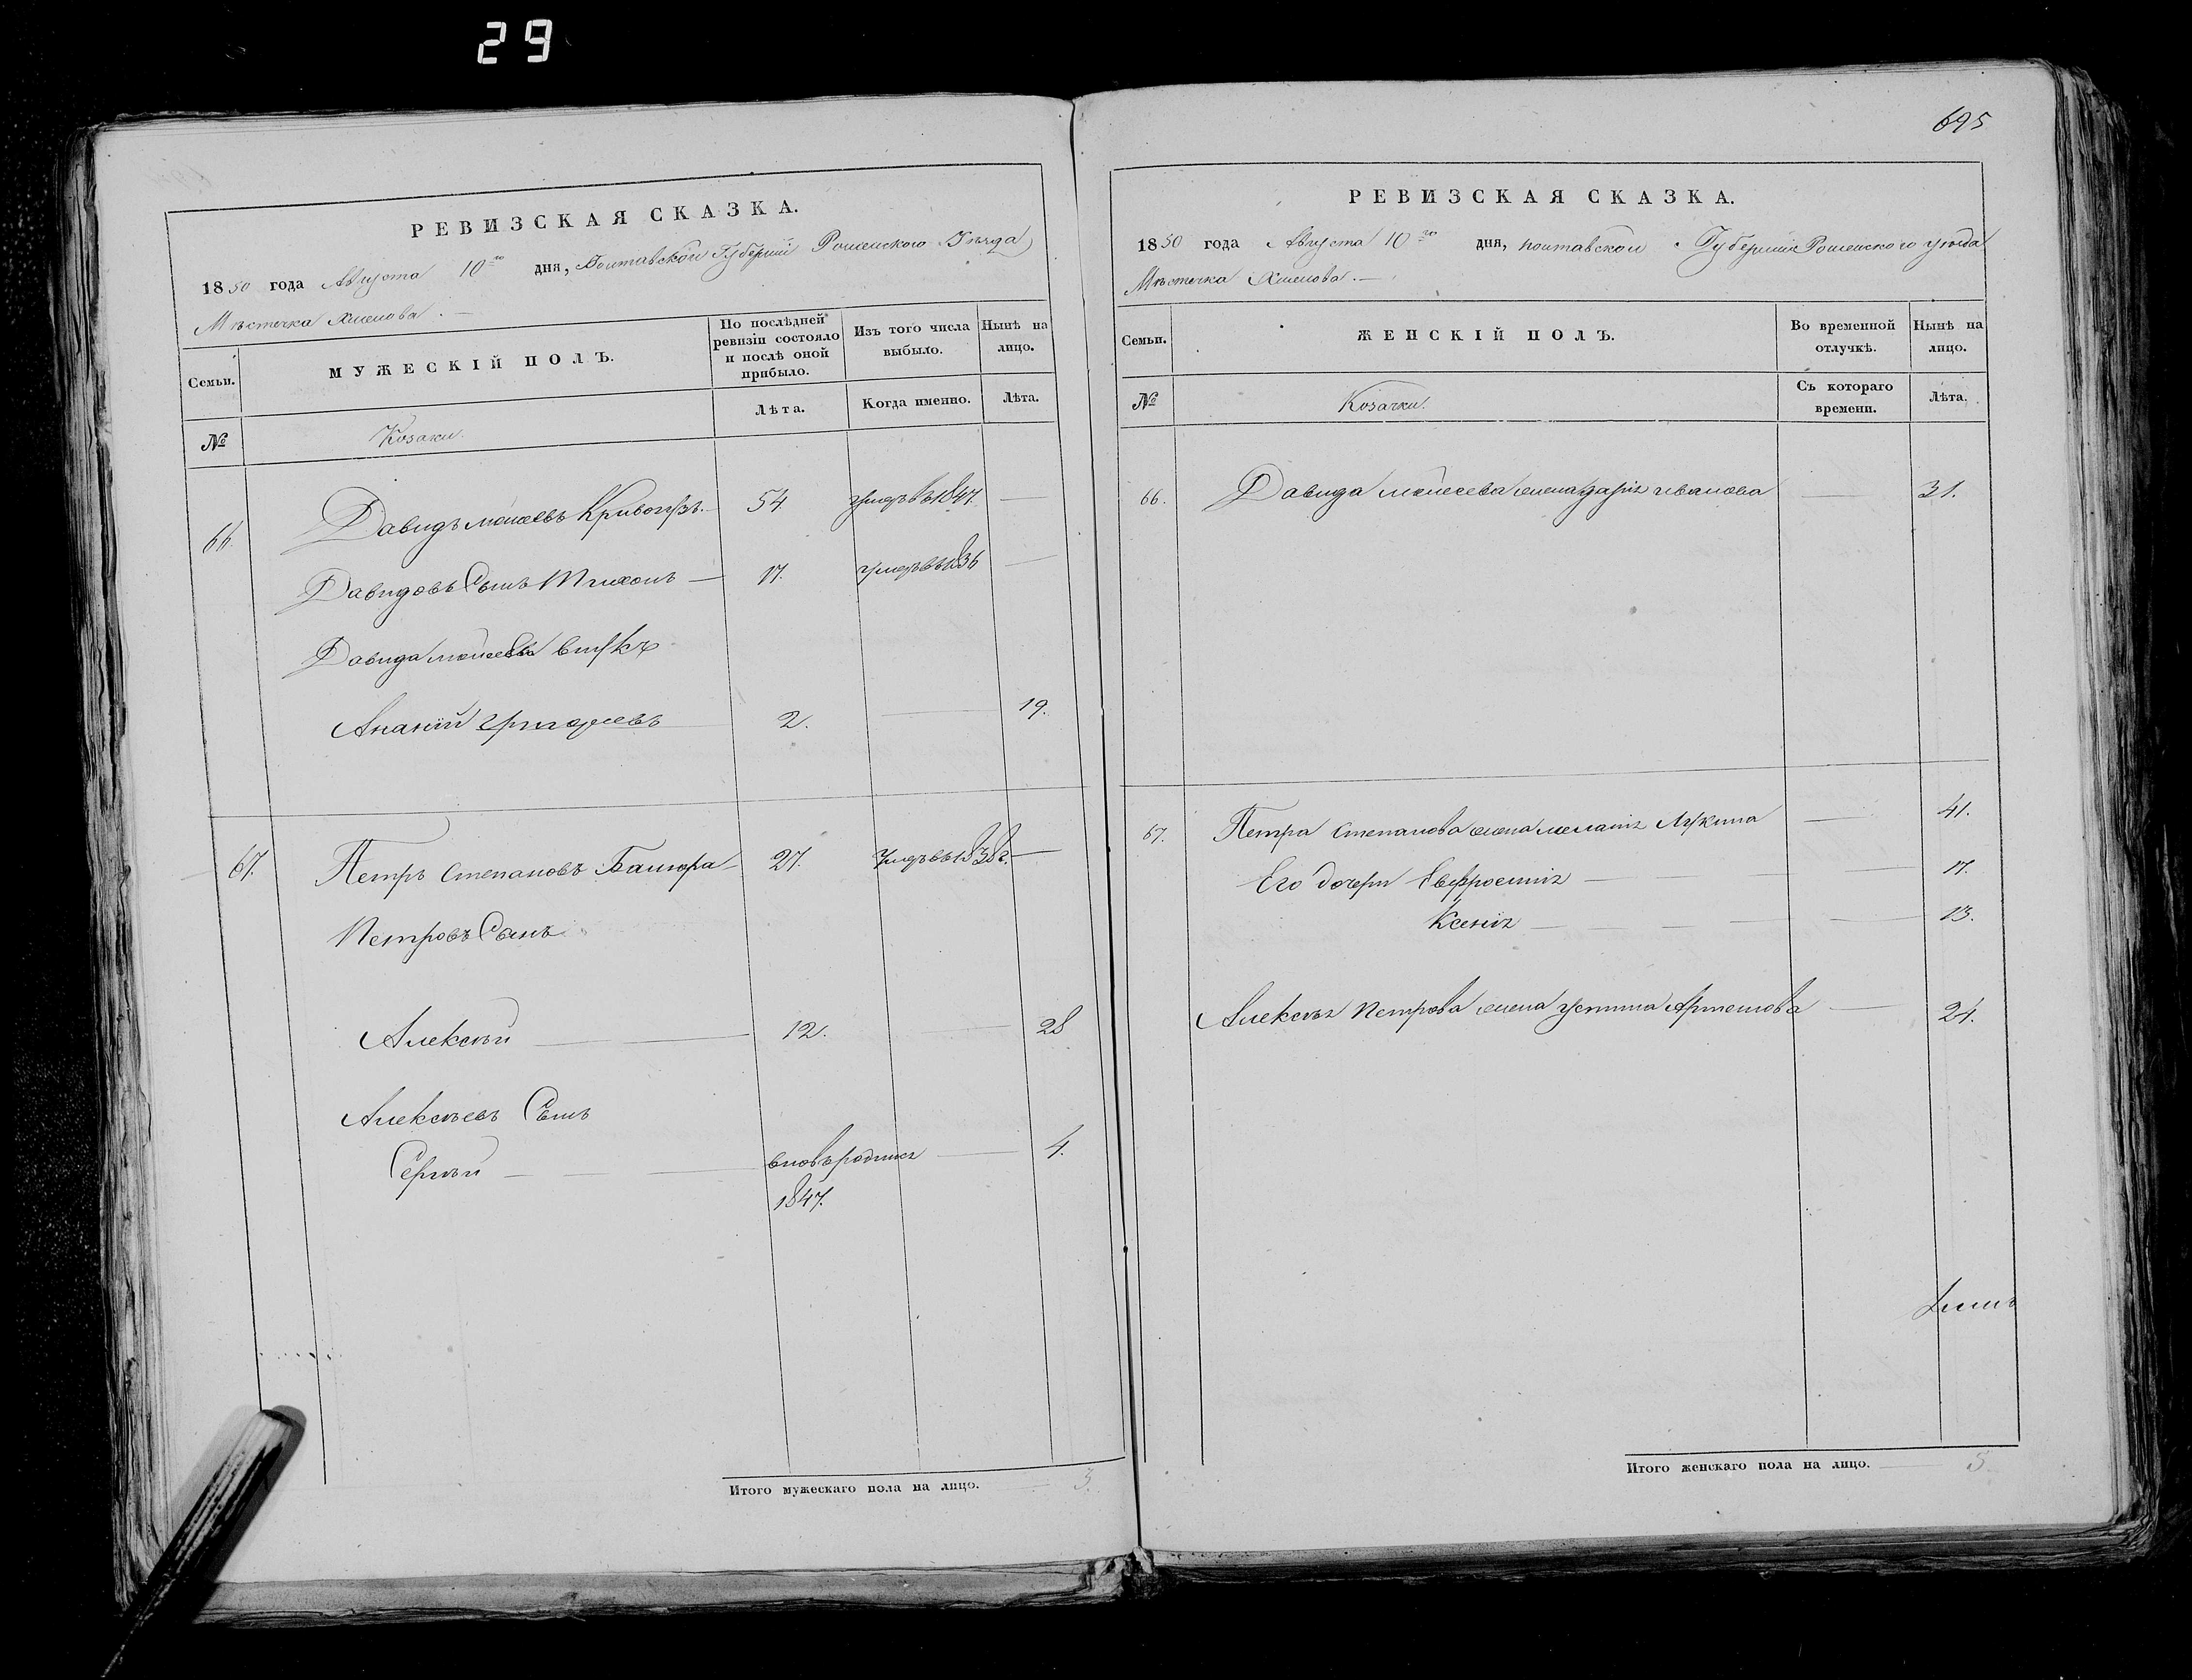 29
695
РЕВИЗСКАЯ СКАЗКА.
1850 года Августа 10го дня, Полтавской Губерніи Роменского Уѣзда
Мѣстечка Хмелова. —
Семьи.
МУЖЕСКІЙ ПОЛЪ.
По послѣдней ревизіи состояло и послѣ оной прибыло.
Изъ того числа выбыло.
Нынѣ на лицо.
№
Козаки.
Лѣта.
Когда именно.
Лѣта.
66. Давидъ Моисеевъ 54 умеръ въ 1847. —
Давидовъ Сынъ Тихонъ — 17. умеръ въ 1836 —
Давида Моисеева внукъ
Ананій Григорьевъ 2. — 19.
67. Петръ Степановъ 27. умеръ въ 1838 г. —
Петровъ Сынъ
Алексѣй — 12. — 28
Алексѣевъ Сынъ
Сергѣй — вновь родился — 4.
1847.
Итого мужескаго пола на лицо. — 3.
РЕВИЗСКАЯ СКАЗКА.
1850 года Августа 10го дня, полтавской Губерніи Роменского уѣзда
Мѣстечка Хмелова. —
Семьи.
ЖЕНСКІЙ ПОЛЪ.
Во временной отлучкѣ.
Нынѣ на лицо.
№
Козачки.
Съ котораго времени.
Лѣта.
66. Давида Моисеева жена Дарія Иванова — 31.
67. Петра Степанова жена Меланія Лукина — 41.
Его дочери Евфросинія — 17.
Ксенія — 13.
Алексѣя Петрова жена Устина Артемова — 21.
Итого женскаго пола на лицо. — 5.